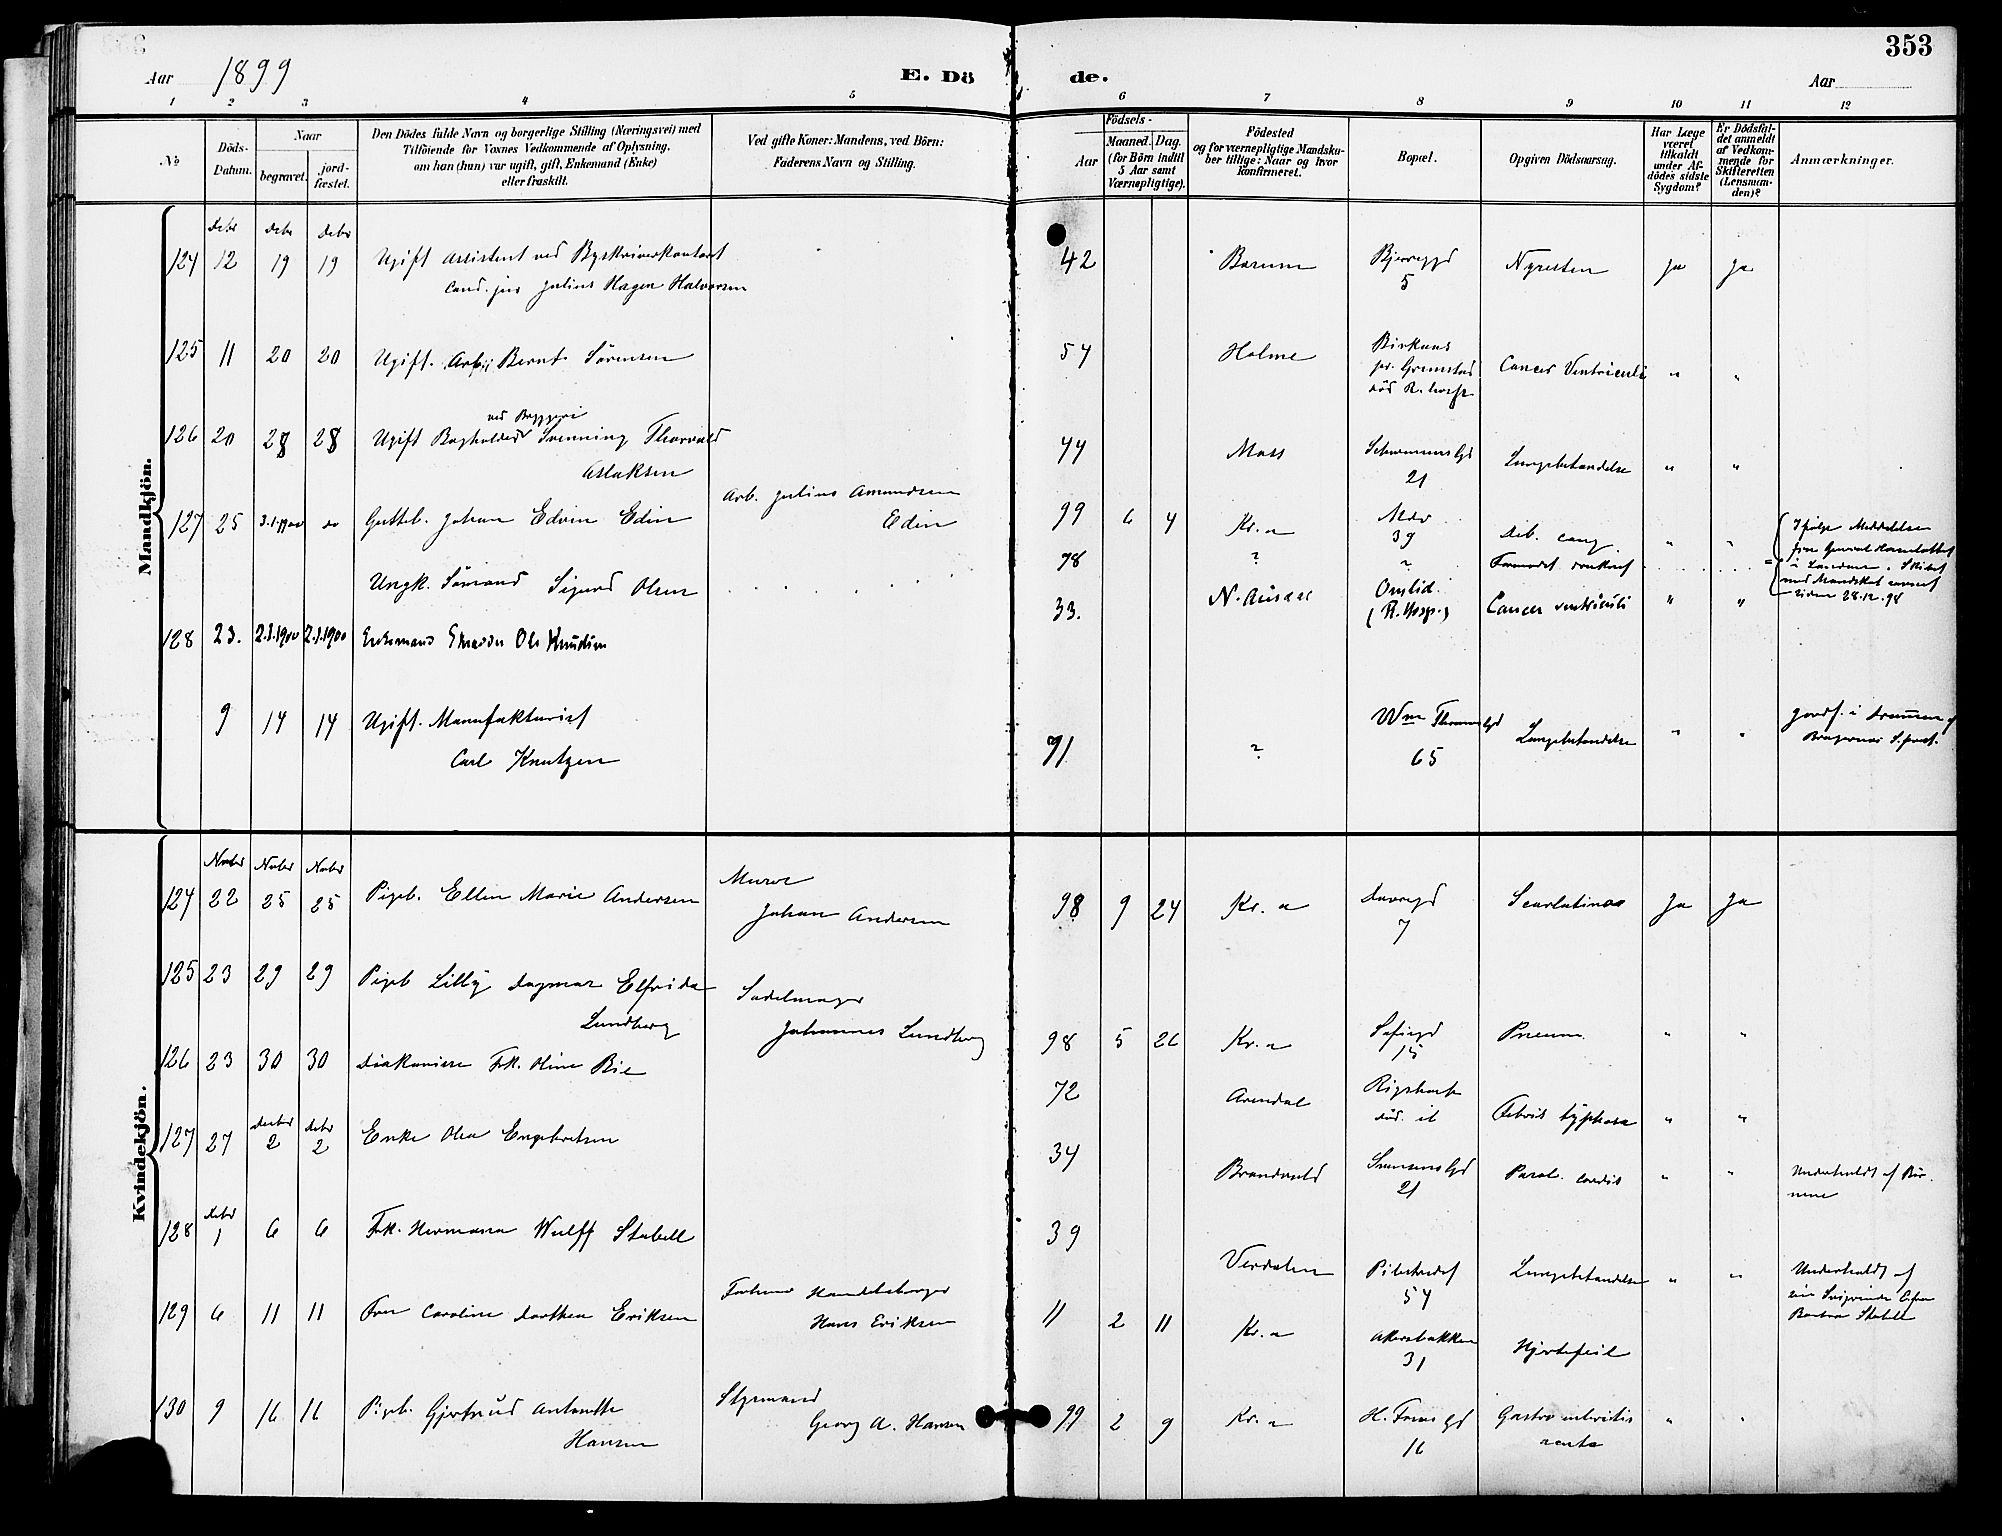 353
Aar 1899
E. Dö
de.
Aar
1 2 3 4 5 6 7 8 9 10 11 12
No
Döds-
Datum.
Naar
begravet.
jord-
fæstet.
Den Dödes fulde Navn og borgerlige Stilling (Næringsvei) med
Tilföiende for Voxnes Vedkommende af Oplysning,
om han (hun) var ugift, gift, Enkemand (Enke)
eller fraskilt.
Ved gifte Koner: Mandens, ved Börn:
Faderens Navn og Stilling.
Födsels-
Aar
Maaned. Dag.
(for Börn indtil
5 Aar samt
Værnepligtige).
Födested
og for værnepligtige Mandska-
ber tillige: Naar og hvor
konfirmeret.
Bopæl.
Opgiven Dödsaarsag.
Har Læge
været
tilkaldt
under Af-
dödes sidste
Sygdom?
Er Dödsfal-
det anmeldt
af Vedkom-
mende for
Skifteretten
(Lensman-
den)?
Anmærkninger.
Mandkjön.
Debr Debr Debr
124 12 19 19 Ugift Assistent ved Byskriverkontoret
Cand. jur Julius Hagen Halvorsen
42 Bærum Bjerregd
5
Nyresten Ja Ja
125 11 20 20 Ugift. Arb. Bernt Sörensen
54 Holme Birkenes
pr. Grimstad
död R.hosp
Cancer Ventriculi " "
ved Bryggeri
126 20 28 28 Ugift Bogholder Svenning Thorvald
Aslaksen
44 Moss Schwensensgd
21
Lungebetændelse " "
127 25 3.1.1900 do Gutteb. Johan Edvin Edin
Arb. Julius Amundsen
Edin
99 6 4 Kr.a
39
Deb. cong. " "
Ungk. Sömand Sigurd Olsen
78 ? ? Formodet druknet
Ifölge Meddelelse
fra General Konsulatet
i London. Skibet
med Mandskab savnet
siden 28.12.98
128 23. 2.1.1900 2.1.1900 Enkemand Skrædder Ole Knudsen
33. Omlid.
(R. Hosp.)
Cancer ventriculi " "
9 14 14 Ugift. Manufakturist
Carl Knutzen
71 ? Wm Thranesgd
65
Lungebetændelse " "
jordf. i Drammen af
Bragernes S.prest.
Kvindekjön.
Novbr Novbr Novbr
124 22 25 25 Pigeb. Ellen Marie Andersen
Murer
Johan Andersen
98 9 24 Kr.a
7
Scarlatina Ja Ja
125 23 29 29 Pigeb Lilly Dagmar Elfrida
Lundberg
Sadelmager
Johannes Lundberg
98 5 26 Kr.a Sofiegd
15
Pneum. " "
126 23 30 30 Diakonisse Frk. Oline Bie
72 Arendal Rigshosp
död. it
Febris typhosa " "
Decbr Debr
127 27 2 2 Enke Olea Engebretsen
34 Brandvold Svensensgd
21
Paral. cordis " "
Underholdt af Bör-
nene
Debr
128 1 6 6 Frk. Hermana Wulff Stabell
39 Verdalen Pilestrædet
54
Lungebetændelse " "
Underholdt af
sin Svigerinde Enkefru
Barbra Stabell
129 6 11 11 Fru Caroline Dorthea Eriksen
Forhenv Handelsborger
Hans Eriksen
11 2 11 Kr.a Akersbakken
31
Hjertefeil
130 9 16 16 Pigeb. Gjertrud Antonette
Hansen
Styrmand
Georg A. Hansen
99 2 9 Kr.a
16
Gastro enteritis
acuta
" "